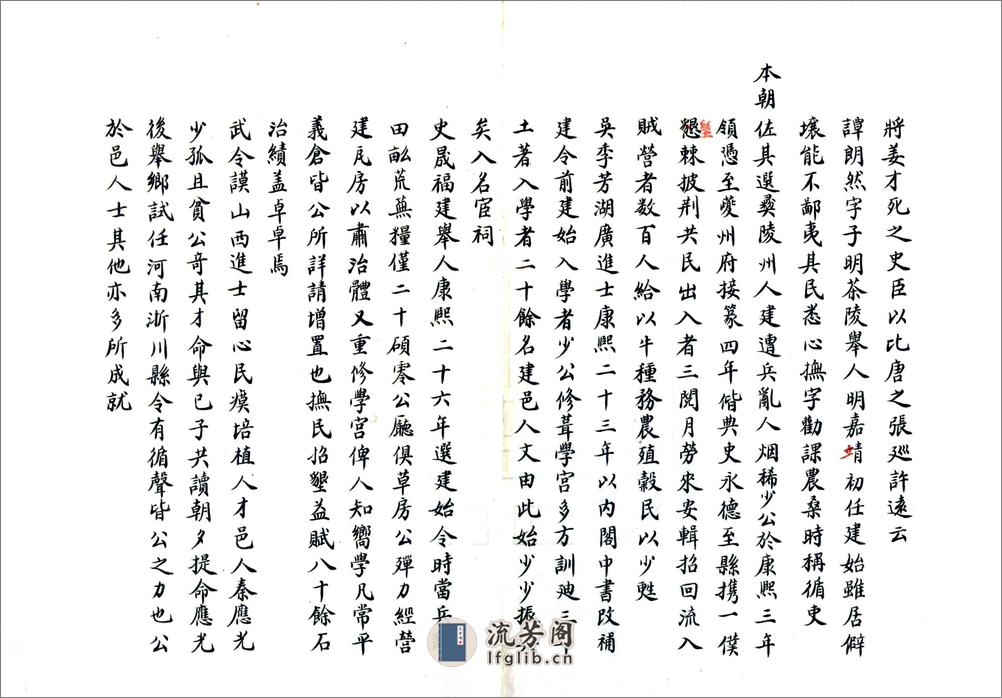 將姜才死之史臣以比唐之張巡許遠云
譚朗然字子明茶陵舉人明嘉靖初任建始雖居僻
壤能不鄙夷其民悉心撫字勸課農桑時稱循吏
本朝佐其選彝陵州人建遭兵亂人烟稀少公於康熙三年
領憑至夔州府接篆四年偕典史永德至縣携一僕
墾棘披荆共民出入者三閱月勞來安輯招回流入
賊營者数百人給以牛種務農殖穀民以少甦
吳李芳湖廣進士康熙二十三年以内閣中書改補
建令前建始入學者少公修葺學宮多方訓廸三
土著入學者二十餘名建邑人文由此始少少振
矣入名宦祠
史晟福建舉人康熙二十六年選建始令時當兵
田畆荒蕪糧僅二十碩零公廳俱草房公殫力經營
建瓦房以肅治體又重修學宮俾人知嚮學凡常平
義倉皆公所詳請增置也撫民招墾益賦八十餘石
治績盖卓卓焉
武令謨山西進士留心民瘼培植人才邑人秦應光
少孤且貧公竒其才命與已子共讀朝夕提命應光
後舉鄉試任河南淅川縣令有循聲皆公之力也公
於邑人士其他亦多所成就
流芳閣
lfglib.cn